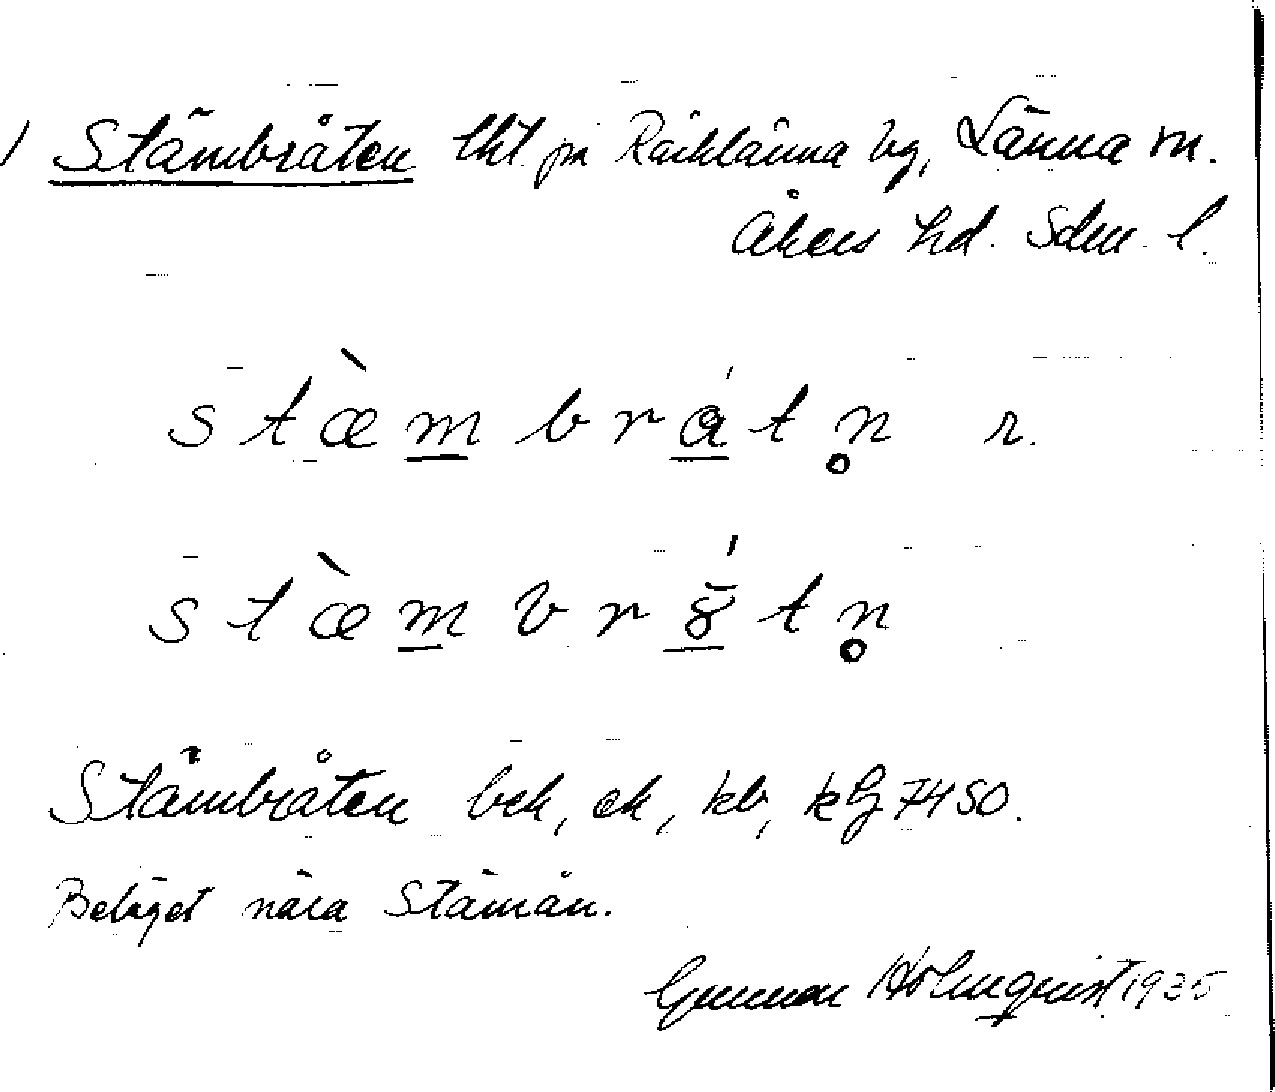 ) Stämbråten lht på Räcklänna äg, Länna sn.
Åkers hd. Sdm. l.
s t æ̀ m b r ǻ t n̥ r.
s t æ̀ m b r ṓ t n̥
Stämbråten bek, ek, kb, kG 7450.
Beläget nära Stämån.
Gunnar Holmquist 1935